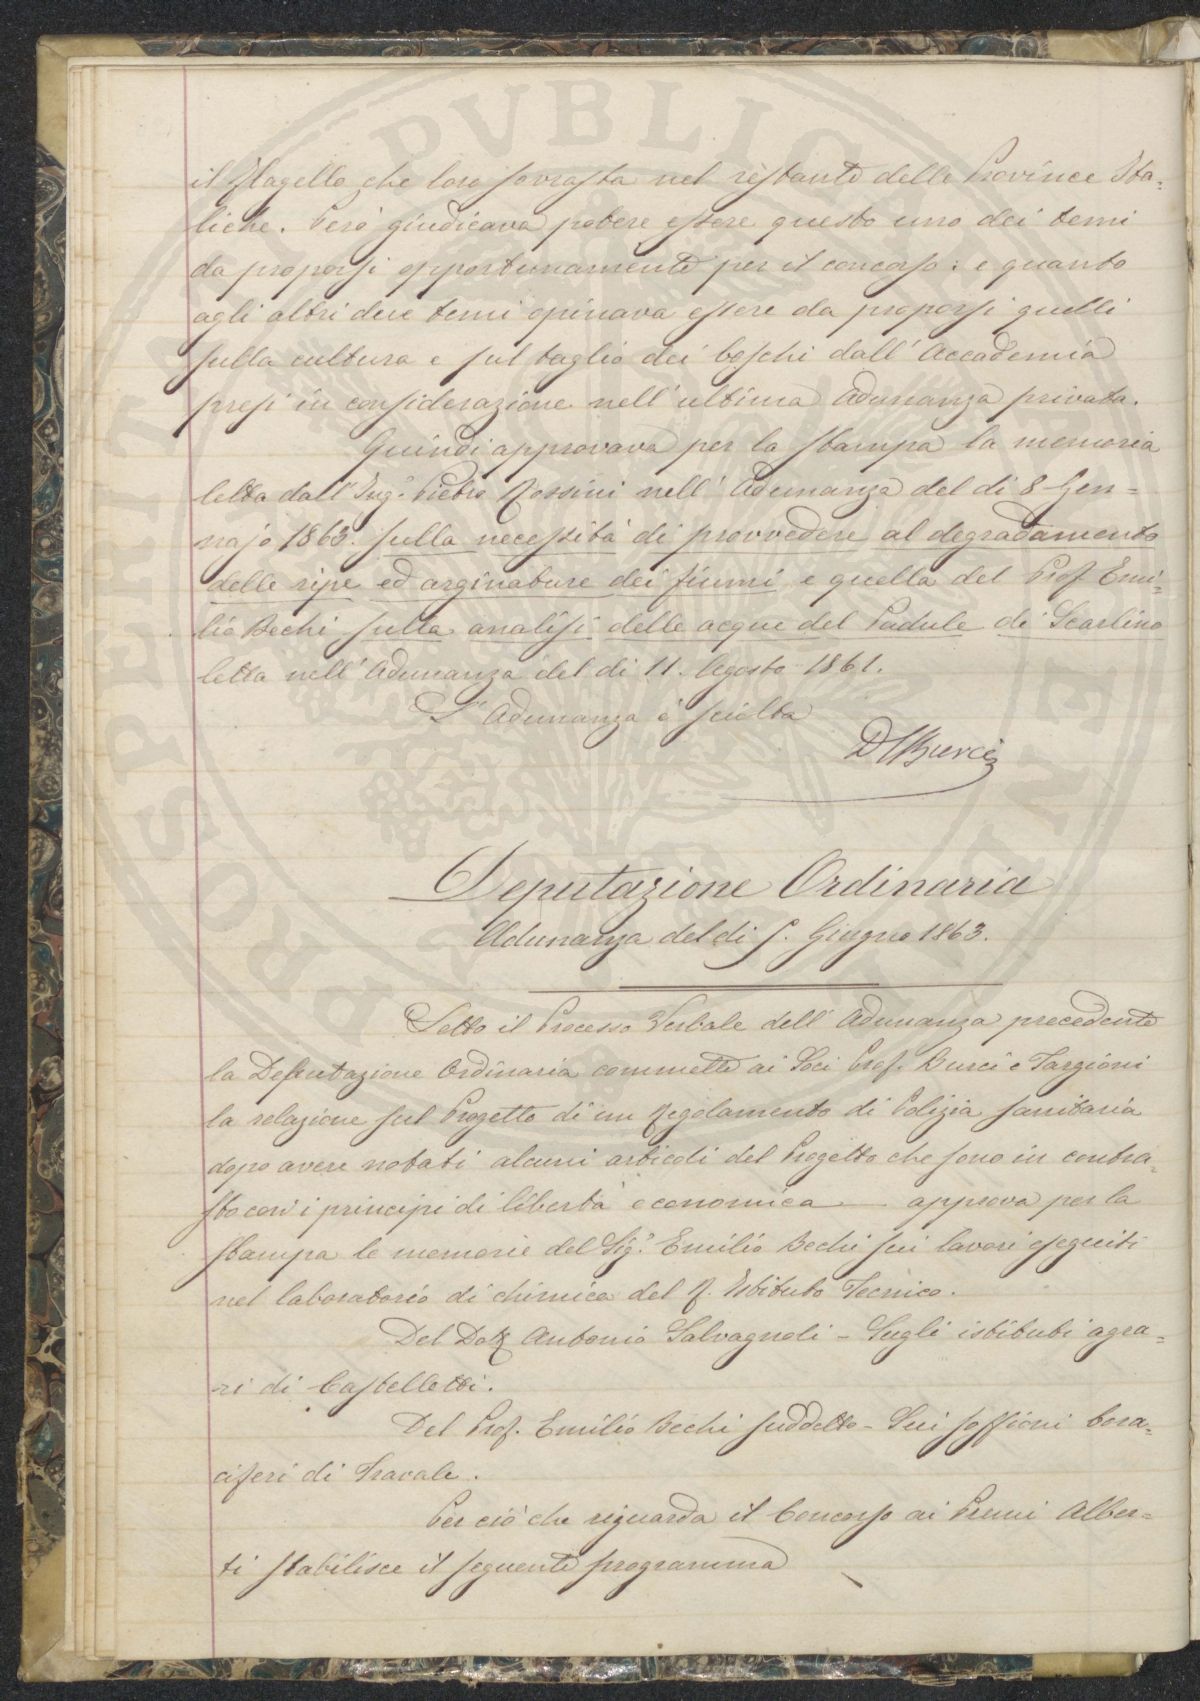 il flagello che loro sovrasta nel restante delle Provincie Ita=
liche. Però giudicava potere essere questo uno dei temi
da proporsi opportunamente per il concorso: e quanto
agli altri due temi opinava essere da proporsi quelli
sulla cultura e sul taglio dei boschi dall' Accademia
presi in considerazione nell' ultima Adunanza privata.
Quindi approvava per la stampa la memoria
letta dall' Ing.e Pietro Rossini nell' Adunanza del di 8 Gen=
najo 1863. sulla necessità di provvedere al degradamento
delle ripe ed arginature dei fiumi e quella del Prof Emi=
lio Bechi sulla analisi delle acque del Padule di Scarlino
letta nell' Adunanza del di 11. Agosto 1861.
L' Adunanza è sciolta
Burci
Deputazione Ordinaria
Adunanza del di Giugno 1863.
Letto il Processo Verbale dell' Adunanza precedente
la Deputazione Ordinaria commette ai Soci Prof. Burci e Targioni
la relazione sul Progetto di un Regolamento di Polizia sanitaria
dopo avere notati alcuni articoli del Progetto che sono in contra=
sto con i principi di libertà economica approva per la
stampa le memorie del Sig.e Emilio Bechi sui lavori eseguiti
nel laboratorio di chimica del R. Istituto Tecnico.
Del Dott Antonio Salvagnoli - Sugli istituti agra=
ri di Castelletti.
Del Prof. Emilio Bechi suddetto - Sui soffioni bora=
ciferi di Travale.
Per ciò che riguarda il Concorso ai Premi Alber=
ti stabilisce il seguente programma
PVBLICAE
PROSPERITATI